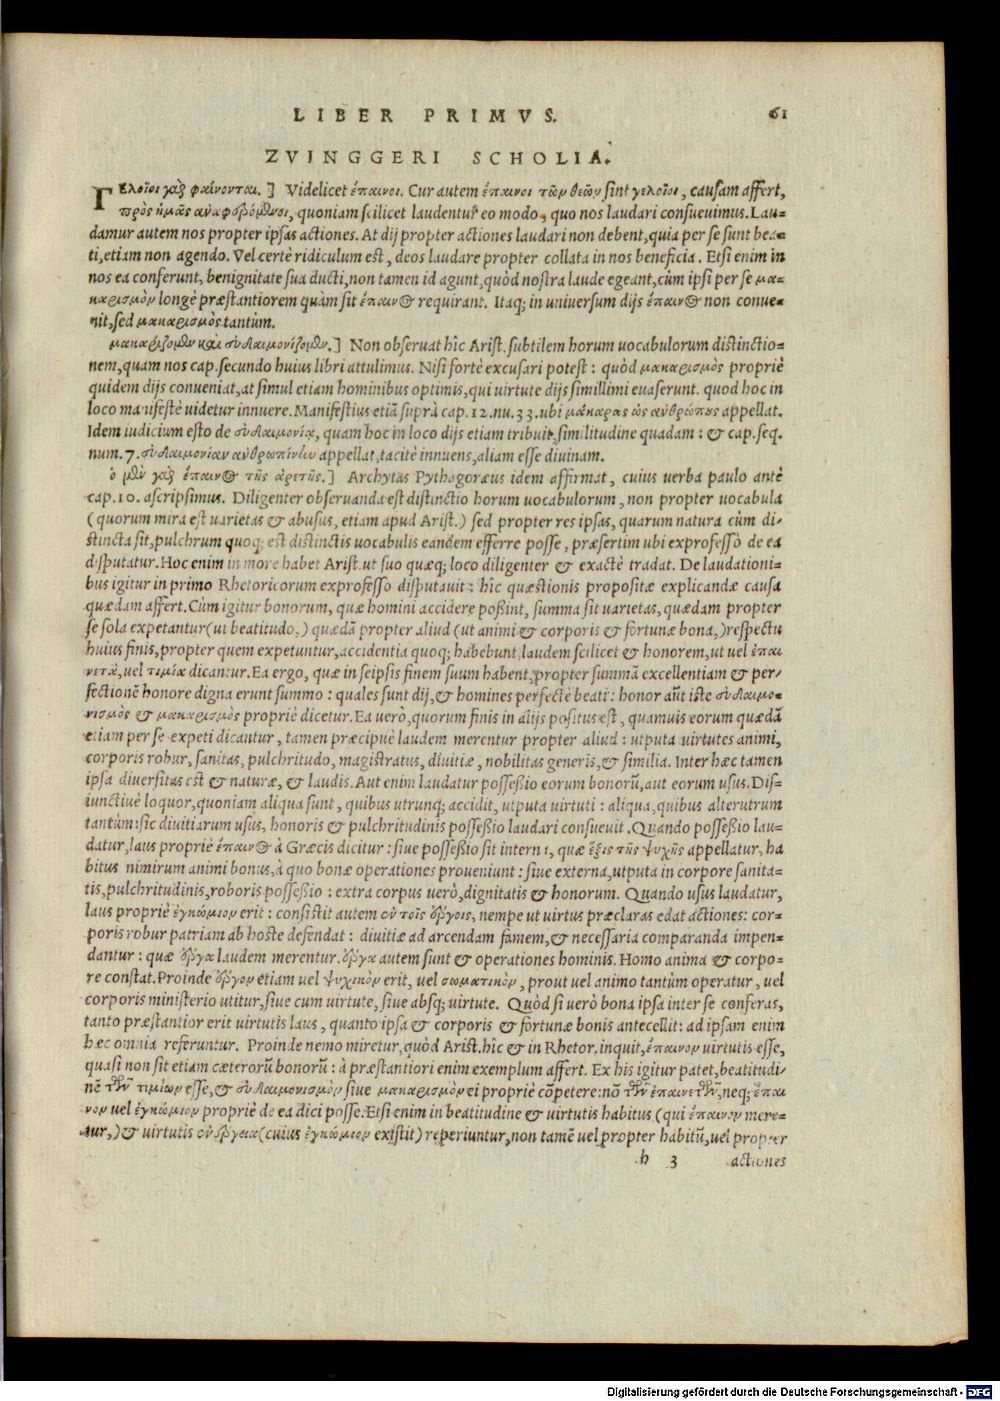 LIBER PRIMVS. 61
ZVINGGERI SCHOLIA.
Γελοῖοι γὰρ φαίνονται.] Videlicet ἔπαινοι. Cur autem ἔπαινοι τῶν θεῶν sint γελοῖοι, causam affert,
πρὸς ἡμᾶς ἀναφερόμενοι, quoniam scilicet laudentur eo modo, quo nos laudari consueuimus. Lau-
damur autem nos propter ipsas actiones. At dij propter actiones laudari non debent, quia per se sunt bea-
ti, etiam non agendo. Vel certè ridiculum est, deos laudare propter collata in nos beneficia. Etsi enim in
nos ea conferunt, benignitate sua ducti, non tamen id agunt, quòd nostra laude egeant, cùm ipsi per se μα-
καρισμὸν longè præstantiorem quàm sit ἔπαινος requirant. Itaq; in uniuersum dijs ἔπαινος non conue-
nit, sed μακαρισμὸς tantùm.
μακαρίζομεν καὶ εὐδαιμονίζομεν.] Non obseruat hîc Arist. subtilem horum uocabulorum distinctio-
nem, quam nos cap. secundo huius libri attulimus. Nisi fortè excusari potest: quòd μακαρισμὸς propriè
quidem dijs conueniat, at simul etiam hominibus optimis, qui uirtute dijs simillimi euaserunt. quod hoc in
loco manifestè uidetur innuere. Manifestius etiã suprà cap. 12. nu. 33. ubi μάκαρας ὡς ἀνθρώπους appellat.
Idem iudicium esto de εὐδαιμονίᾳ, quam hoc in loco dijs etiam tribuit, similitudine quadam: & cap. seq.
num. 7. εὐδαιμονίαν ἀνθρωπίνην appellat, tacitè innuens, aliam esse diuinam.
ὁ μὲν γὰρ ἔπαινος τῆς ἀρετῆς.] Archytas Pythagoræus idem affirmat, cuius uerba paulo antè
cap. 10. ascripsimus. Diligenter obseruanda est distinctio horum uocabulorum, non propter uocabula
(quorum mira est uarietas & abusus, etiam apud Arist.) sed propter res ipsas, quarum natura cùm di-
stincta sit, pulchrum quoq; est distinctis uocabulis eandem efferre posse, præsertim ubi exprofesso de ea
disputatur. Hoc enim in more habet Arist. ut suo quæq; loco diligenter & exactè tradat. De laudationi-
bus igitur in primo Rhetoricorum exprofesso disputauit: hîc quæstionis propositæ explicandæ causa
quædam affert. Cùm igitur bonorum, quæ homini accidere possint, summa sit uarietas, quædam propter
se sola expetantur (ut beatitudo,) quædã propter aliud (ut animi & corporis & fortunæ bona,) respectu
huius finis, propter quem expetuntur, accidentia quoq; habebunt, laudem scilicet & honorem, ut uel ἐπαι
νετὰ, uel τιμία dicantur. Ea ergo, quæ in seipsis finem suum habent, propter summã excellentiam & per-
fectionẽ honore digna erunt summo: quales sunt dij, & homines perfectè beati: honor aũt iste εὐδαιμο-
νισμὸς & μακαρισμὸς propriè dicetur. Ea uerò, quorum finis in alijs positus est, quamuis eorum quædã
etiam per se expeti dicantur, tamen præcipuè laudem merentur propter aliud: utputa uirtutes animi,
corporis robur, sanitas, pulchritudo, magistratus, diuitiæ, nobilitas generis, & similia. Inter hæc tamen
ipsa diuersitas est & naturæ, & laudis. Aut enim laudatur possessio eorum bonorũ, aut eorum usus. Dis-
iunctiuè loquor, quoniam aliqua sunt, quibus utrunq; accidit, utputa uirtuti: aliqua, quibus alterutrum
tantùm: sic diuitiarum usus, honoris & pulchritudinis possessio laudari consueuit. Quando possessio lau-
datur, laus propriè ἔπαινος à Græcis dicitur: siue possessio sit interni, quæ ἕξις τῆς ψυχῆς appellatur, ha
bitus nimirum animi bonus, à quo bonæ operationes proueniunt: siue externa, utputa in corpore sanita-
tis, pulchritudinis, roboris possessio: extra corpus uerò, dignitatis & honorum. Quando usus laudatur,
laus propriè ἐγκώμιον erit: consistit autem ἐν τοῖς ἔργοις, nempe ut uirtus præclaras edat actiones: cor-
poris robur patriam ab hoste defendat: diuitiæ ad arcendam famem, & necessaria comparanda impen-
dantur: quæ ἔργα laudem merentur. ἔργα autem sunt & operationes hominis. Homo anima & corpo-
re constat. Proinde ἔργον etiam uel ψυχικὸν erit, uel σωματικὸν, prout uel animo tantùm operatur, uel
corporis ministerio utitur, siue cum uirtute, siue absq; uirtute. Quòd si uerò bona ipsa inter se conferas,
tanto præstantior erit uirtutis laus, quanto ipsa & corporis & fortunæ bonis antecellit: ad ipsam enim
hæc omnia referuntur. Proinde nemo miretur, quòd Arist. hîc & in Rhetor. inquit, ἔπαινον uirtutis esse,
quasi non sit etiam cæterorũ bonorũ: à præstantiori enim exemplum affert. Ex his igitur patet, beatitudi-
nẽ τῶν τιμίων esse, & εὐδαιμονισμὸν siue μακαρισμὸν ei propriè cõpetere: nõ τῶν ἐπαινετῶν, neq; ἔπαι
νον uel ἐγκώμιον propriè de ea dici posse. Etsi enim in beatitudine & uirtutis habitus (qui ἔπαινον mere-
tur,) & uirtutis ἐνέργεια (cuius ἐγκώμιον existit) reperiuntur, non tamẽ uel propter habitũ, uel propter
h 3 actiones
Digitalisierung gefördert durch die Deutsche Forschungsgemeinschaft - DFG